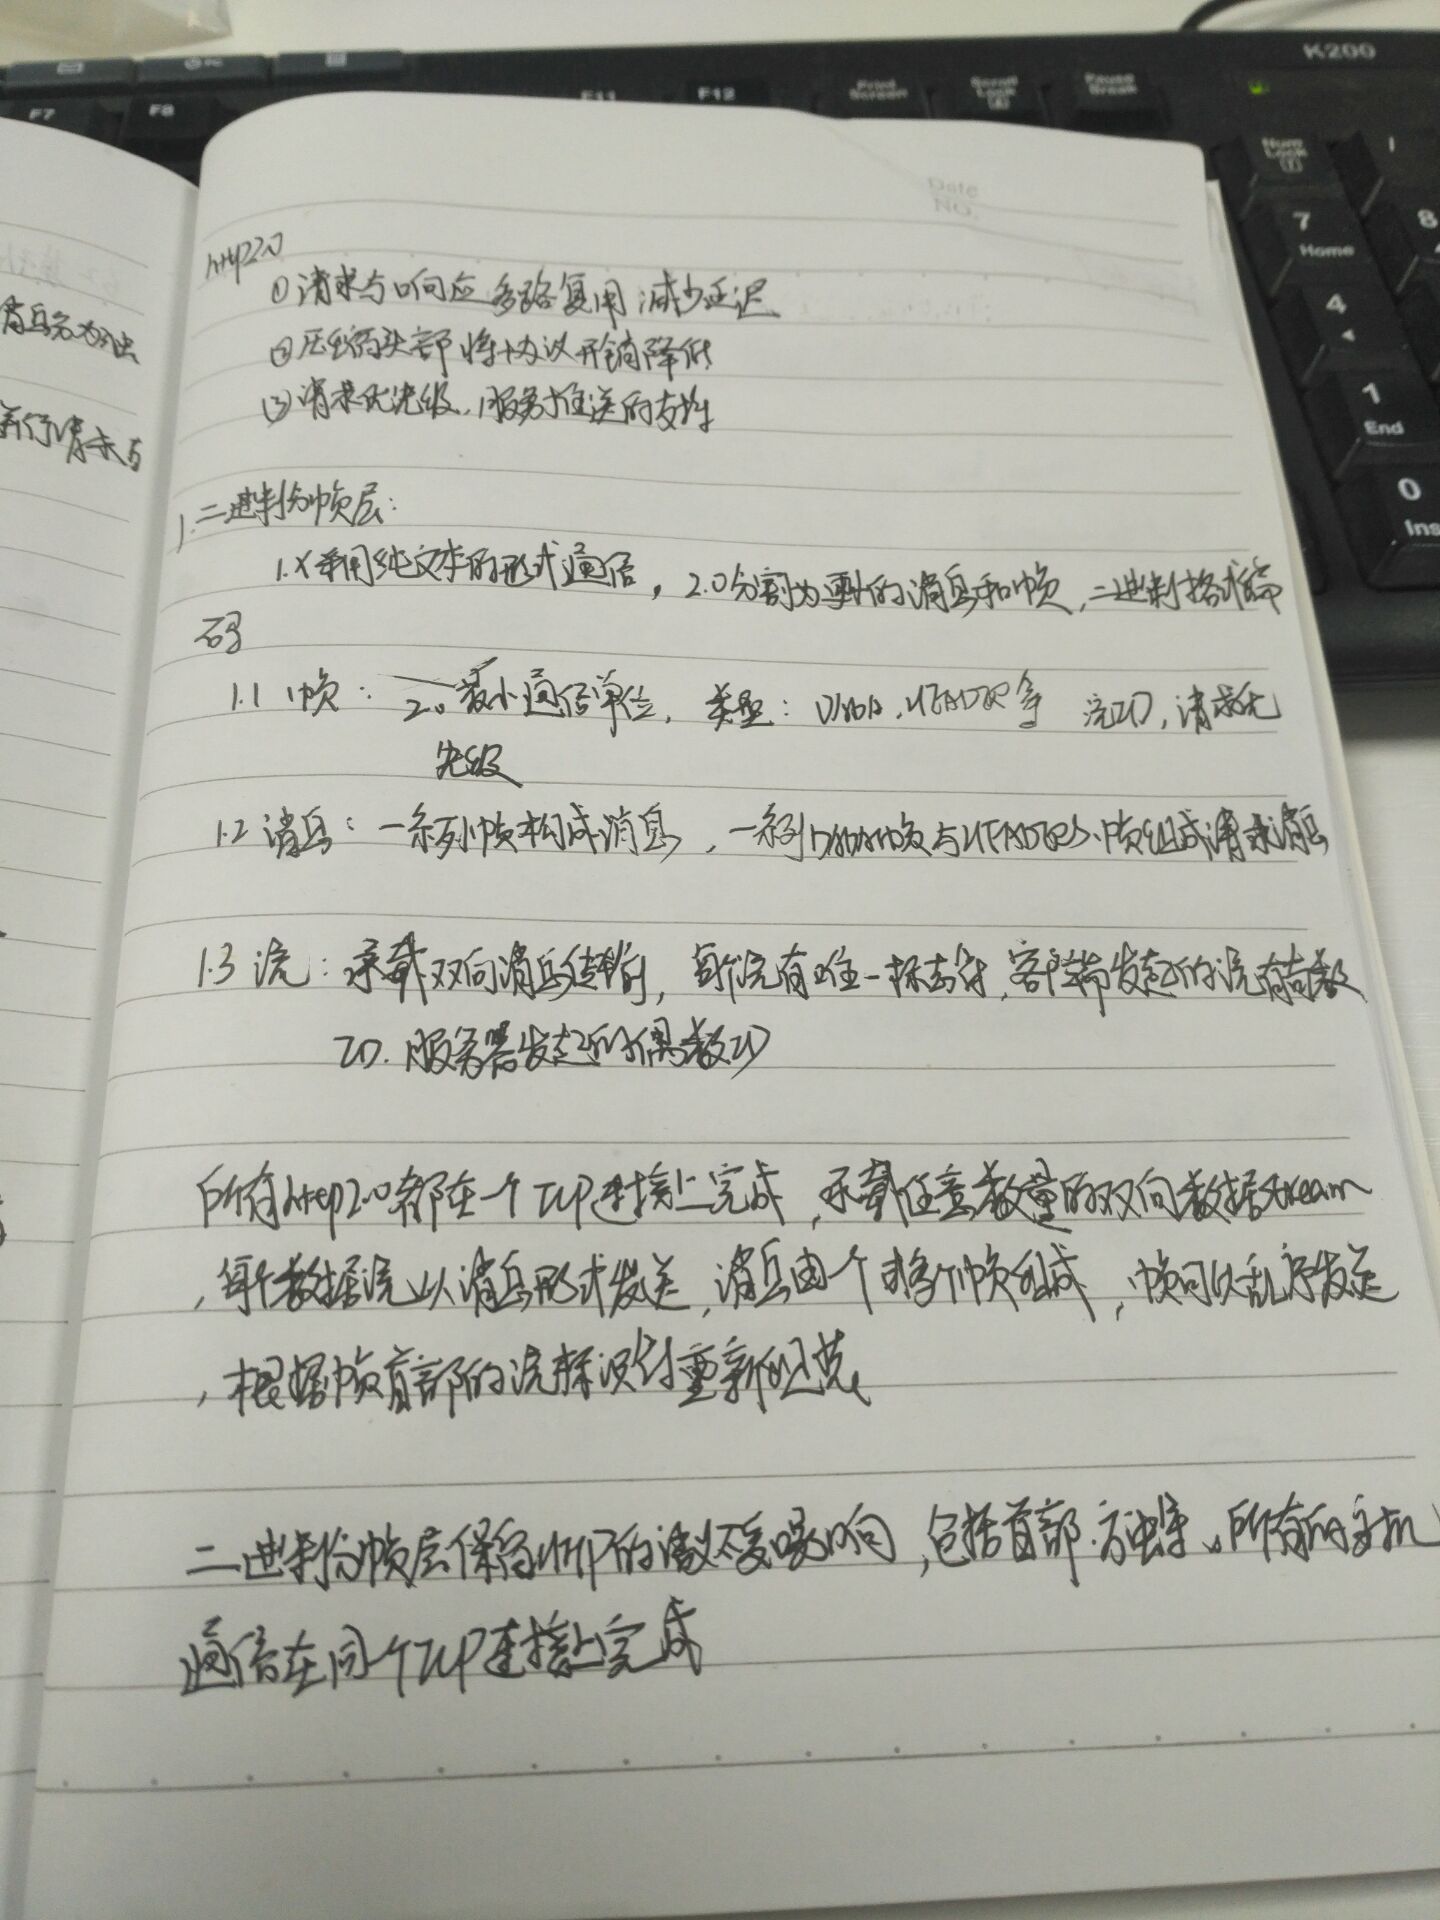 K200
F7
F8
F11
F12
Print
Screen
Scroll
Lock
Pause
Break
Num
Lock
7
Home
8
4
1
End
0
Ins
Date
NO.
消息分为独
并行请求与
http2.0
①请求与响应多路复用 减少延迟
②压缩头部 将协议开销降低
③请求优先级,服务推送的支持
1.二进制分帧层:
1.X采用纯文本的形式通信,2.0分割为更小的消息和帧,二进制格式编
码
1.1 帧: 2.0最小通信单位, 类型: DATA, HEADER等 流ID,请求优
先级
1.2 消息: 一系列帧构成消息,一系列DATA帧与HEADERS帧组成请求消息
1.3 流: 承载双向消息传输,每个流有唯一标志符,客户端发起的流有奇数
ID.服务器发起的偶数ID
所有http2.0都在一个TCP连接上完成,承载任意数量的双向数据stream
,每个数据流以消息形式发送,消息由一个或多个帧组成,帧可以乱序发送
,根据帧首部的流标识符重新组装
二进制分帧层保留HTTP的语义不受影响,包括首部、方法等。所有的主机
通信在同一个TCP连接上完成